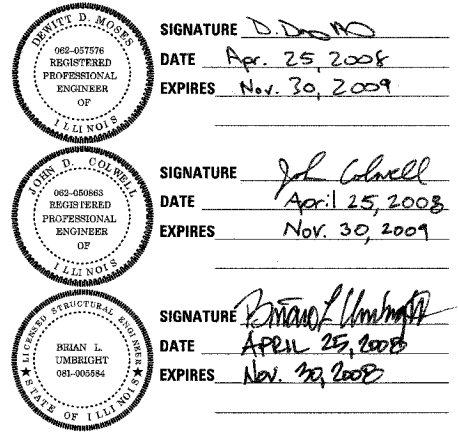 DEWITT D. MOSES
062-057576
REGISTERED
PROFESSIONAL
ENGINEER
OF
ILLINOIS
SIGNATURE
DATE Apr. 25, 2008
EXPIRES Nov. 30, 2009
JOHN D. COLWELL
062-050863
REGISTERED
PROFESSIONAL
ENGINEER
OF
ILLINOIS
SIGNATURE John Colwell
DATE April 25, 2008
EXPIRES Nov. 30, 2009
LICENSED STRUCTURAL ENGINEER
BRIAN L.
UMBRIGHT
081-005584
STATE OF ILLINOIS
SIGNATURE Brian L Umbright
DATE APRIL 25, 2008
EXPIRES Nov. 30, 2008